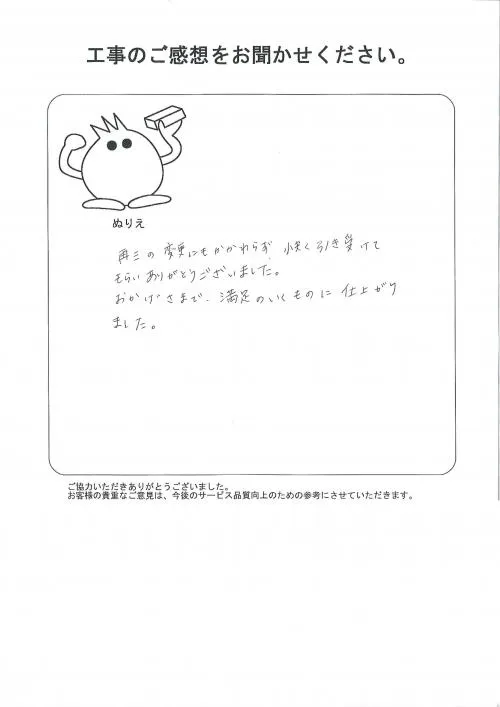 工事のご感想をお聞かせください。
ぬりえ
再三の変更にもかかわらず、快く引き受けて
もらいありがとうございました。
おかげさまで、満足のいくものに仕上がり
ました。
ご協力いただきありがとうございました。
お客様の貴重なご意見は、今後のサービス品質向上のための参考にさせていただきます。